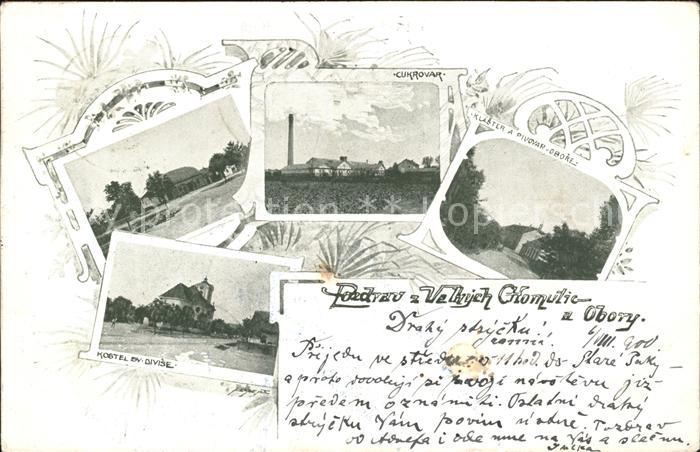 CUKROVAR
KLÁŠTER A PIVOVAR - OBOŘE
KOSTEL SV. DIVIŠE.
Pozdrav z Velkých Chomutic
a Obory.
Drahý strýčku!
Přijedu ve středu o 11 hod. do Staré Paky
a proto dovoluji si svoji návštěvu již
předem oznámiti. Ostatní drahý
strýčku Vám povím ústně. Pozdrav
od a ode mne na Vás a slečnu.